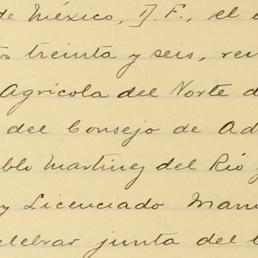 de México, D. F., el
treinta y seis, reu
Agrícola del Norte d
del Consejo de Ad
blo Martínez del Río y
y Licenciado Manu
elebrar junta del